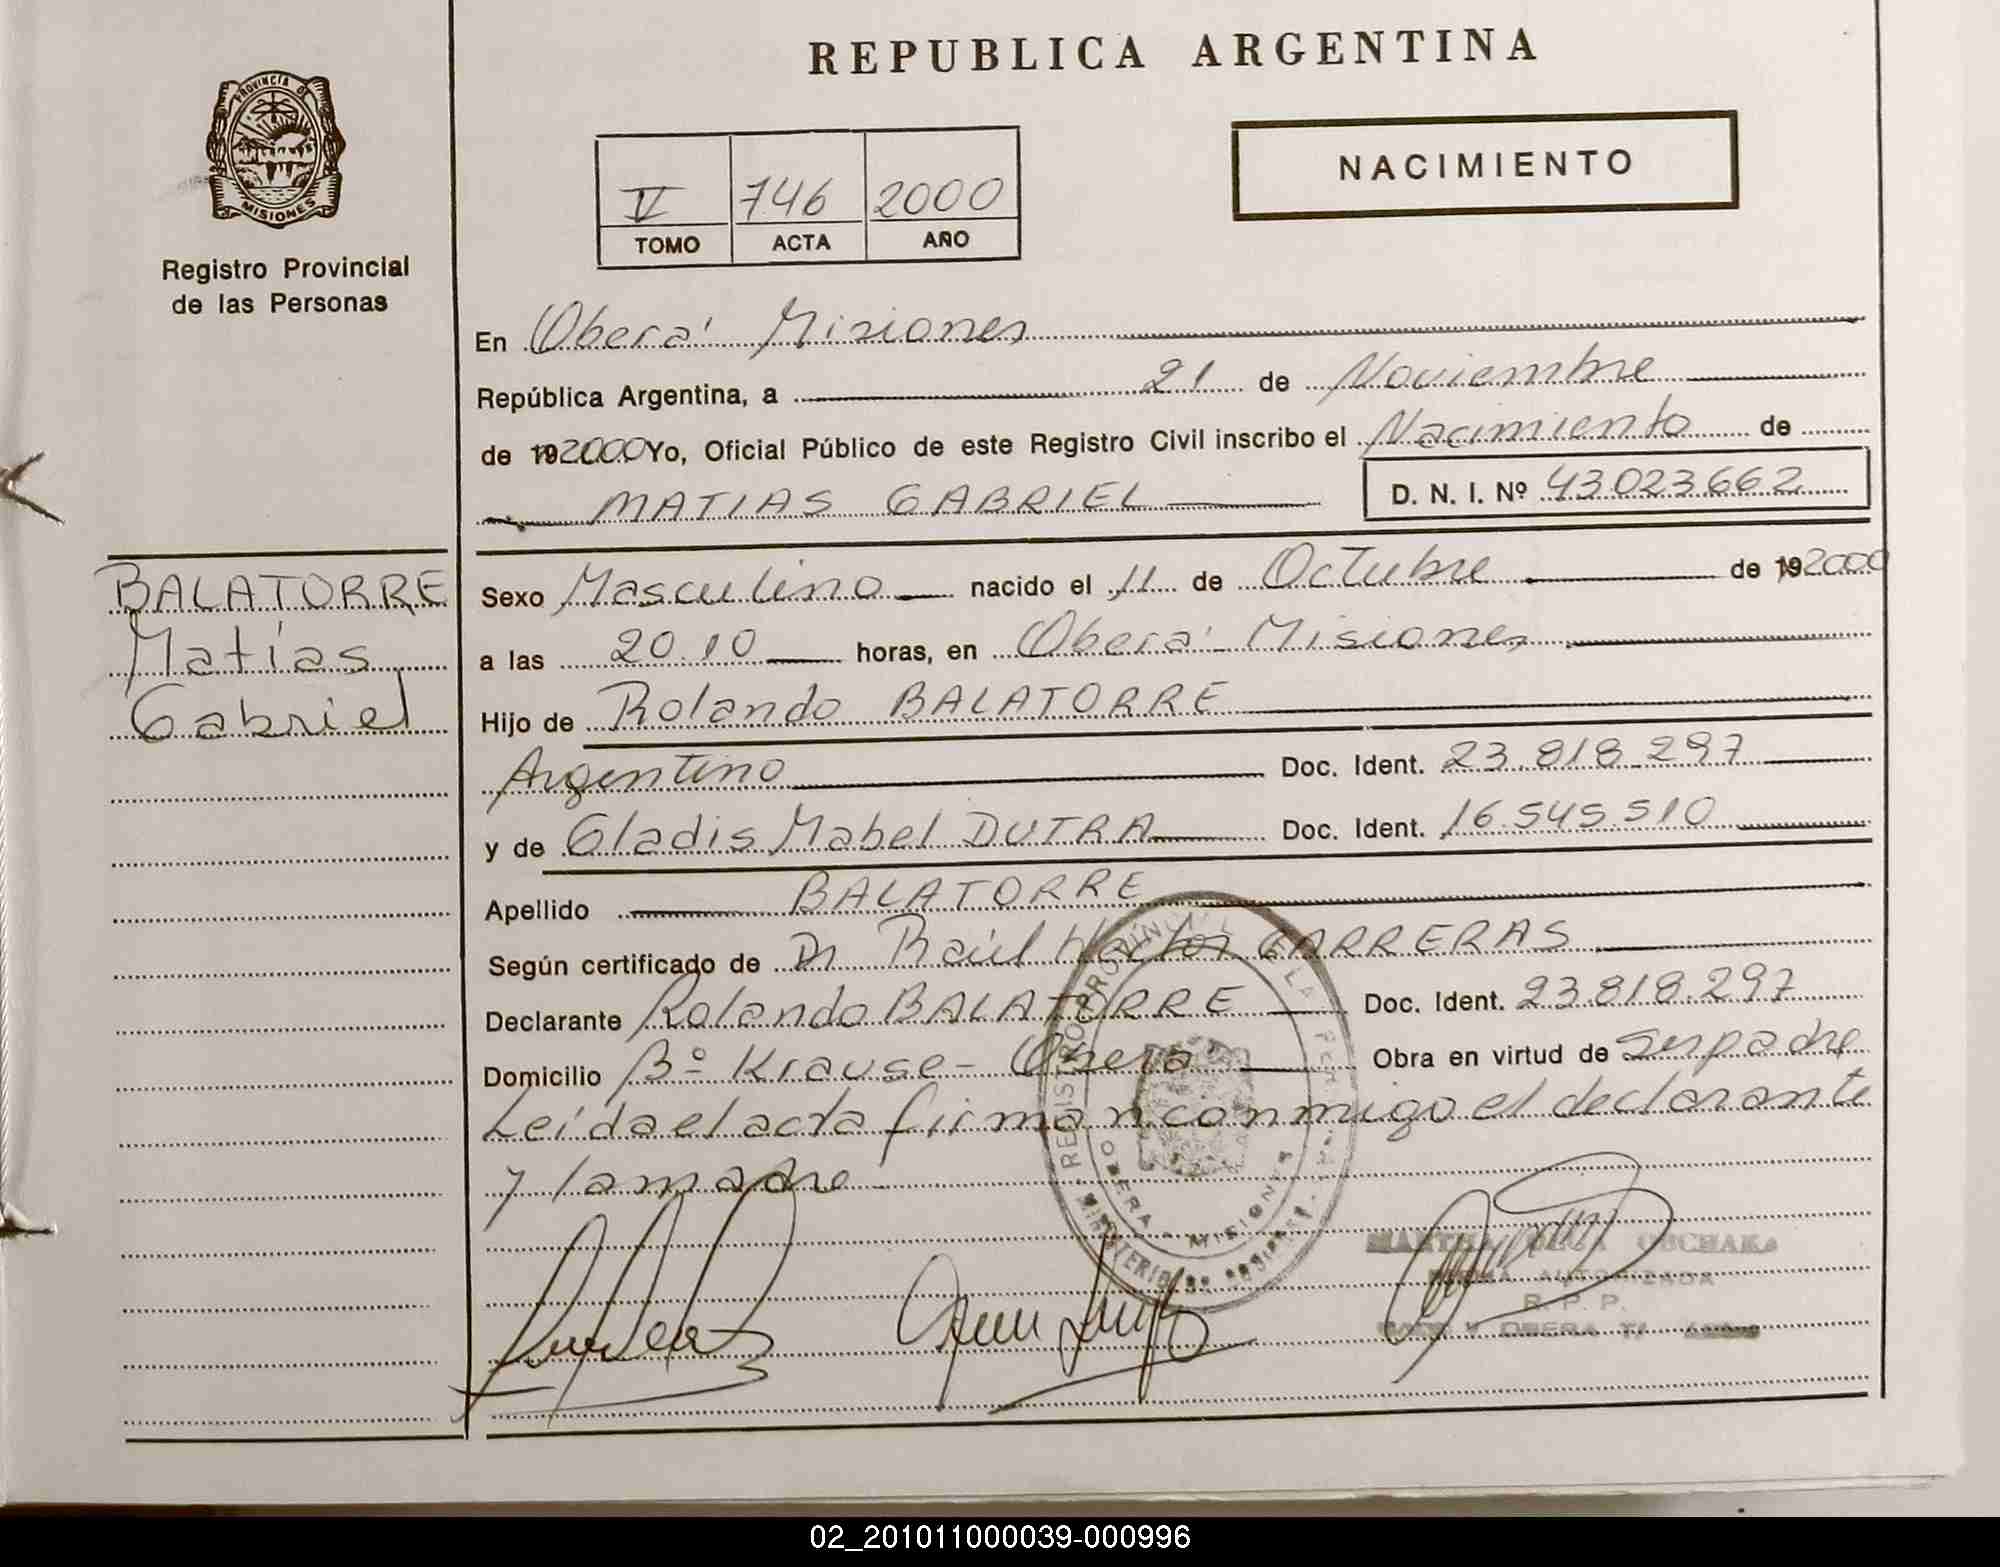 REPUBLICA ARGENTINA
PROVINCIA DE
MISIONES
Registro Provincial
de las Personas
V 746 2000
TOMO ACTA AÑO
NACIMIENTO
En Oberá Misiones
República Argentina, a 21 de Noviembre
de 192000 Yo, Oficial Público de este Registro Civil inscribo el Nacimiento de
MATIAS GABRIEL D. N. I. Nº 43023662
BALATORRE
Matías
Gabriel
Sexo Masculino nacido el 11 de Octubre de 192000
a las 20.10 horas, en Oberá - Misiones
Hijo de Rolando BALATORRE
Argentino Doc. Ident. 23.818.297
y de Gladis Mabel DUTRA Doc. Ident. 16.545.510
Apellido BALATORRE
Según certificado de Dr Raúl Hector CARRERAS
Declarante Rolando BALATORRE Doc. Ident. 23.818.297
Domicilio Bº Krause - Oberá Obra en virtud de ser padre
Leída el acta firman conmigo el declarante
y la madre
REGISTRO PROVINCIAL DE LAS
OBERA - MISIONES
MARTHA OLGA OBCHAKA
FIRMA AUTORIZADA
R. P. P.
02_201011000039-000996